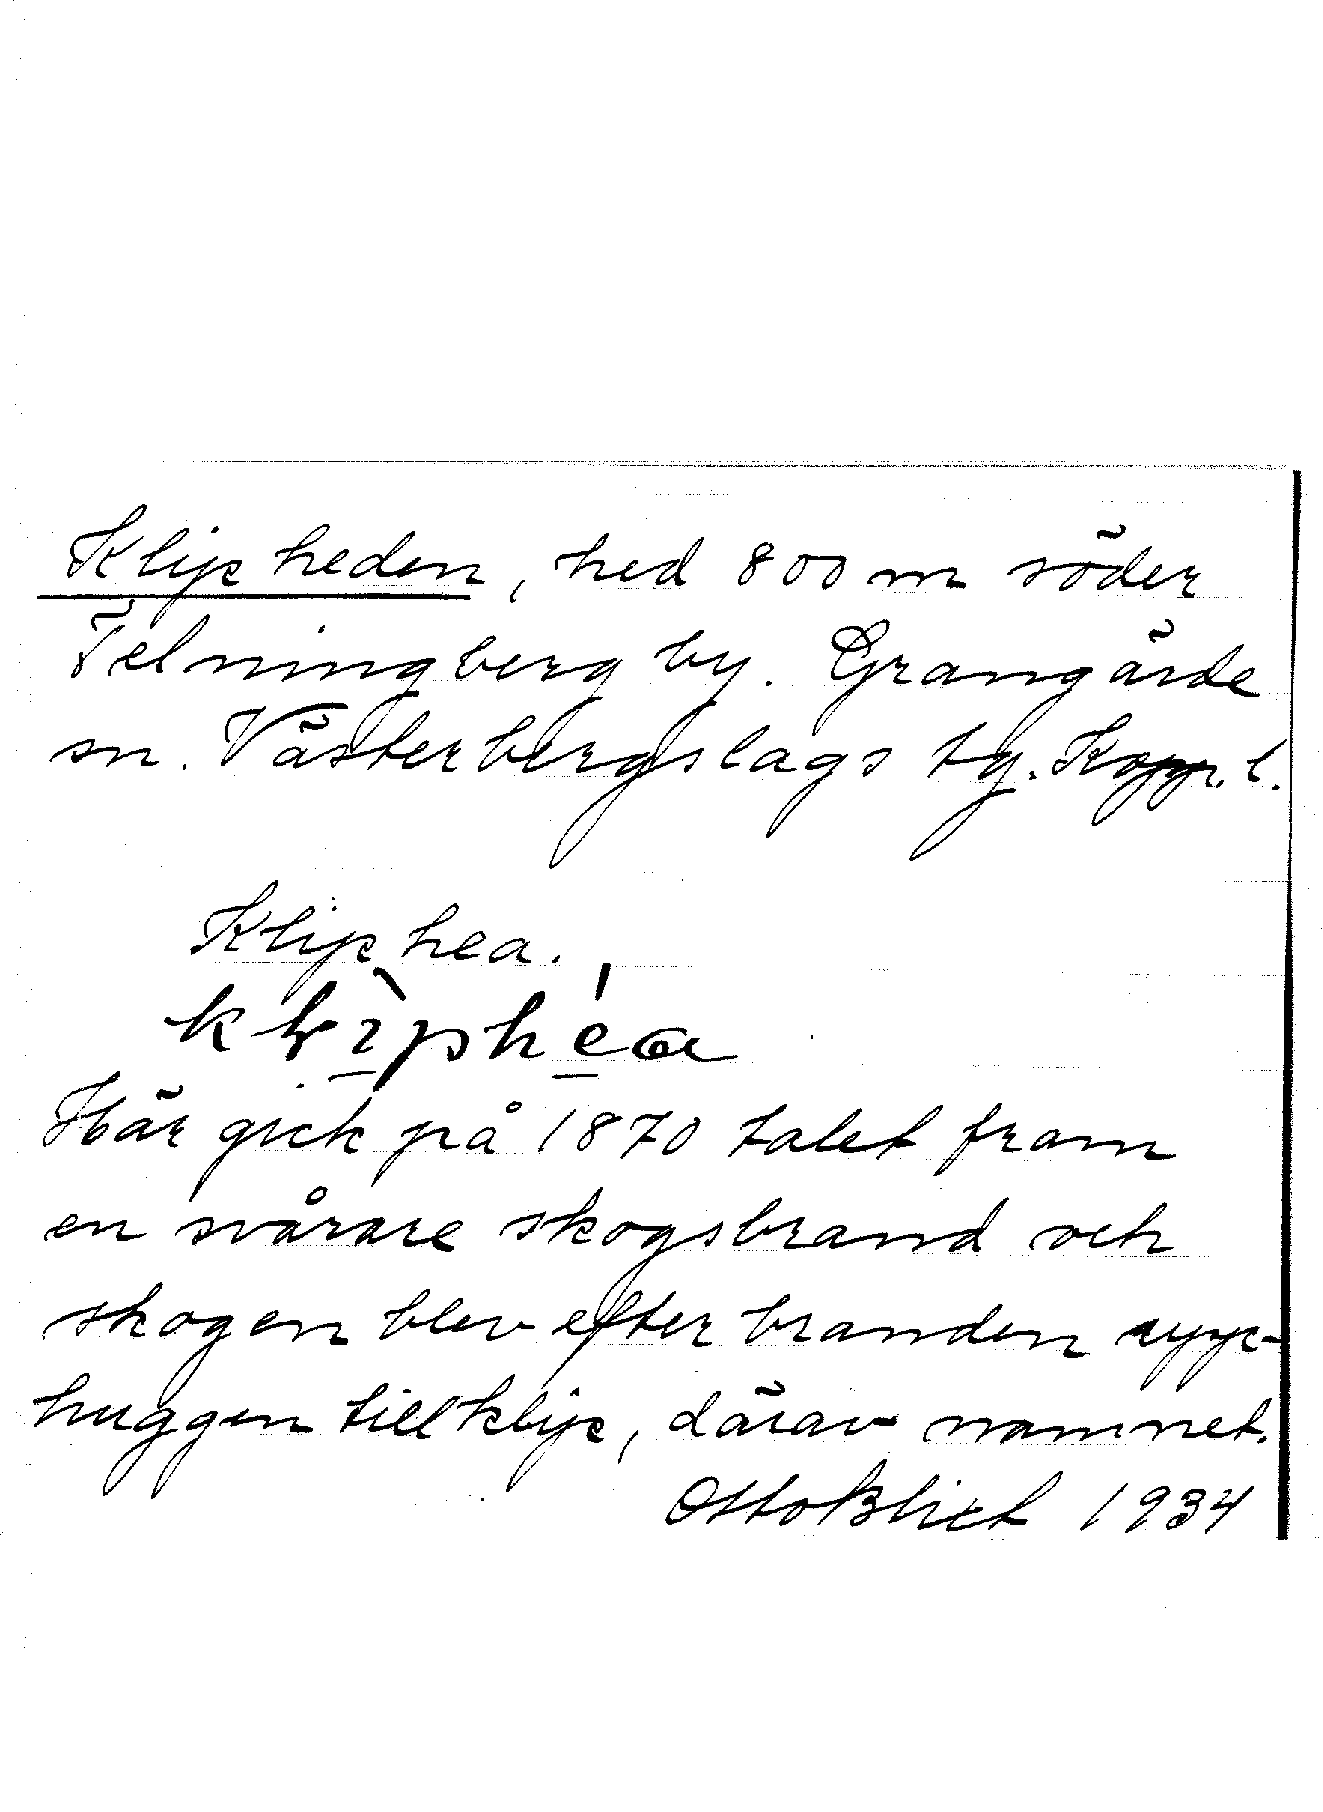 Klipheden, hed 800 m söder
Telningberg by. Grangärde
sn. Västerbergslags tg. Kopp. l.
Kliphea.
Här gick på 1870 talet fram
en svårare skogsbrand och
skogen blev efter branden upp-
huggen till klip, därav namnet.
Otto Blixt 1934